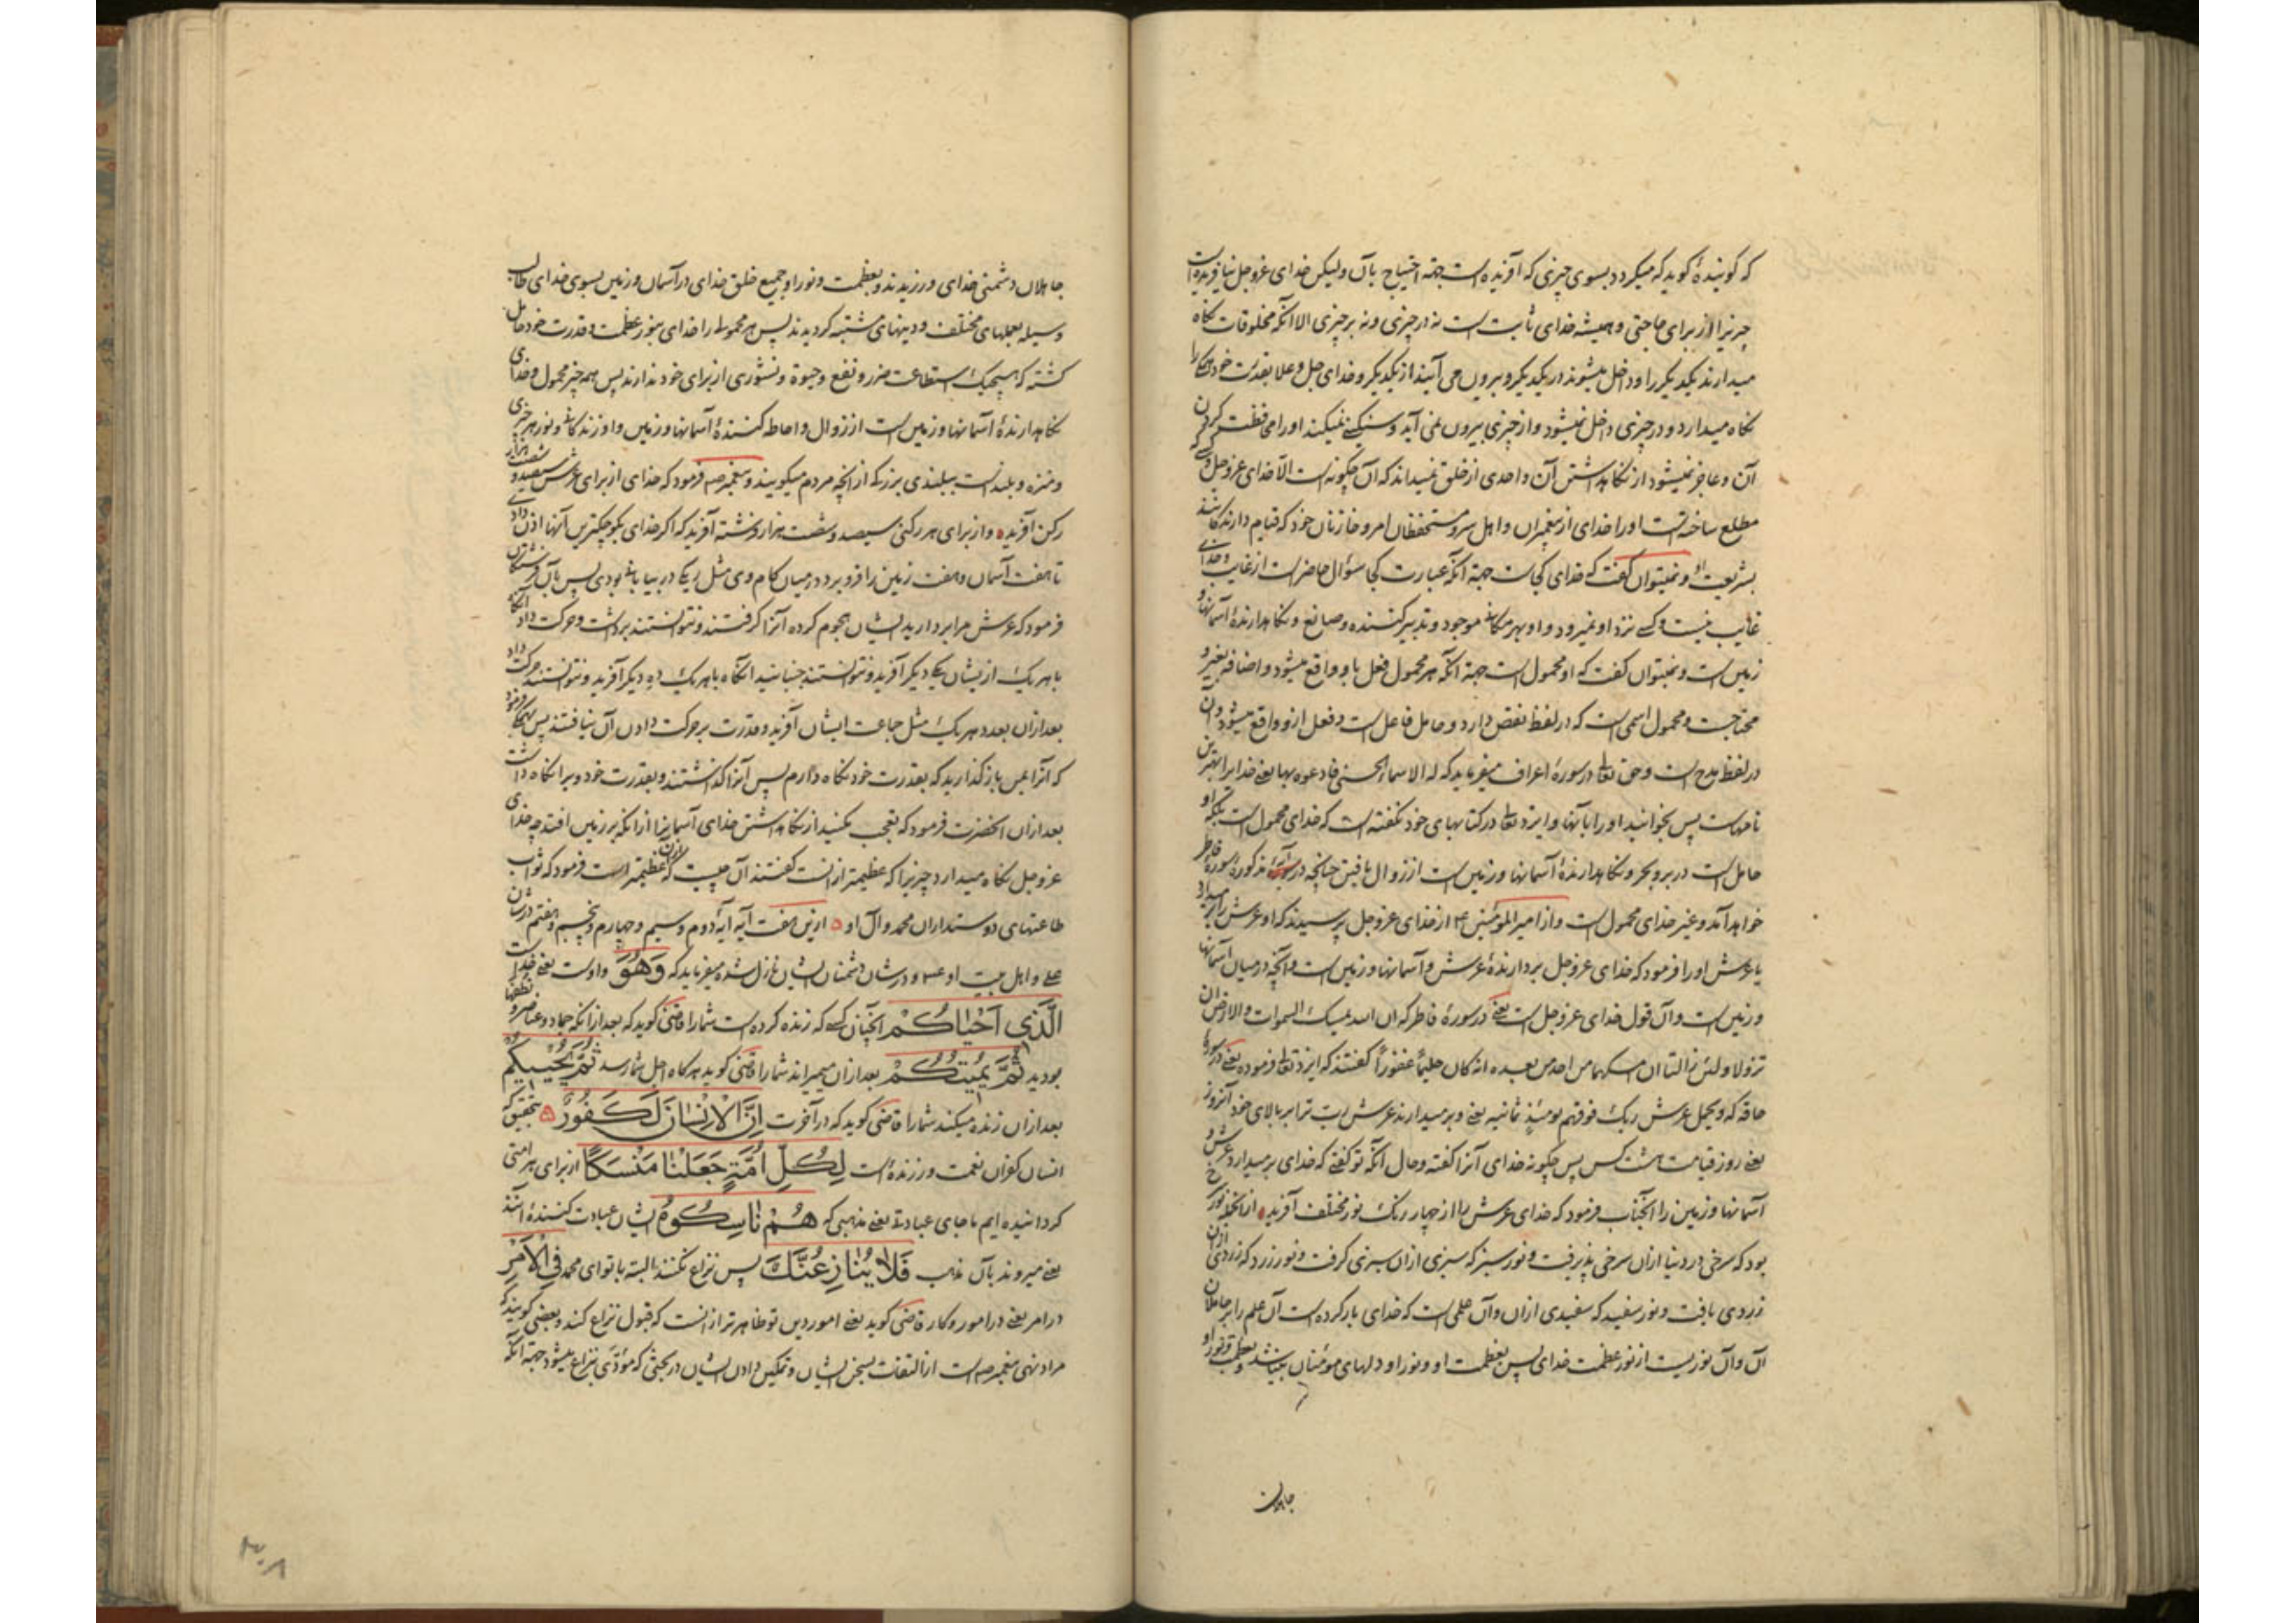 که گوینده گوید که میگردد بسوی چیزی که آفریده است جهة احتیاج بآن ولیکن خدای عزوجل نیافریده است
چیزیرا از برای حاجتی و همیشه خدای ثابت است نه در چیزی و نه بر چیزی الا آنکه مخلوقات نگاه
میدارند یکدیگر را و داخل میشوند در یکدیگر و بیرون می آیند از یکدیگر و خدای جل و علا بقدرت خود همه را
نگاه میدارد و در چیزی داخل نمیشود و از چیزی بیرون نمی آید و سنگینی نمیکند او را محافظت کردن
آن و عاجز نمیشود از نگاهداشتن آن و احدی از خلق نمیداند که آن چگونه است الا خدای عزوجل و کسی که
مطلع ساخته است او را خدای از پیغمبران و اهل سر و مستحفظان امر و خازنان خود که قیام دارنده باشند
بشریعت او و نمیتوان گفت که خدای کجاست جهة آنکه عبارت کجا سؤال حاضر است از غایب و خدای
غایب نیست و کسی نزد او نمیرود و او بهر مکانی موجود و تدبیر کننده و صانع و نگاهدارندهٔ آسمانها و
زمین است و نمیتوان گفت که او محمول است جهة آنکه هر محمول فعل باو واقع میشود و اضافه بغیر و
محتاجست و محمول اسمی است که در لفظ نقص دارد و حامل فاعل است و فعل ازو واقع میشود و آن
در لفظ مدح است و حق تعالی در سورهٔ اعراف میفرماید که له الاسماء الحسنی فادعوه بها یعنی خدایرا بهترین
نامهاست پس بخوانید او را بآنها و ایزد تعالی در کتابهای خود نگفته است که خدای محمول است بلکه او
حامل است در بر و بحر و نگاهدارندهٔ آسمانها و زمین است از زوال یافتن چنانچه در آیهٔ مذکورهٔ سورهٔ فاطر
خواهد آمد و غیر خدای محمول است و از امیر المؤمنین ع از خدای عزوجل پرسیدند که او عرش را برمیدارد
یا عرش او را فرمود که خدای عزوجل بردارندهٔ عرش و آسمانها و زمین است و آنچه در میان آسمانها
و زمین است و آن قول خدای عزوجل است یعنی در سورهٔ فاطر که ان الله یمسک السموات والارض ان
تزولا ولئن زالتا ان امسکهما من احد من بعده انه کان حلیمًا غفوراً گفتند که ایزد تعالی فرموده یعنی در سورهٔ
حاقه که و یحمل عرش ربک فوقهم یومئذٍ ثمانیه یعنی و برمیدارند عرش رب ترا بر بالای خود آنروز
یعنی روز قیامت هشت کس پس چگونه خدای آنرا گفته و حال آنکه تو گفتی که خدای برمیدارد عرش و
آسمانها و زمین را آنجناب فرمود که خدای عرش را از چهار رنگ نور مختلف آفریده از آنجمله نور سرخ
بود که سرخی در دنیا ازان سرخی پذیرفت و نور سبز که سبزی ازان سبزی گرفت و نور زرد که زردی ازان
زردی یافت و نور سفید که سفیدی ازان و آن علمی است که خدای بار کرده است آن علم را بر حاملان
آن و آن نوریست از نور عظمت خدای پس بعظمت او و نور او دلهای مؤمنان بینا شد و بعظمت و نور او
جاهلان
جاهلان دشمنی خدای ورزیدند و بعظمت و نور او جمیع خلق خدای در آسمان و زمین بسوی خدای طالب
وسیله بعملهای مختلف و دینهای مشتبه گردیدند پس هر محمولی را خدای بنور عظمت و قدرت خود حامل
گشته که هیچیک استطاعت ضرر و نفع و حیوة و نشوری از برای خود ندارند پس همه چیز محمول و خدای
نگاهدارندهٔ آسمانها و زمین است از زوال و احاطه کنندهٔ آسمانها و زمین و او زندگانی و نور هر چیزی
و منزه و بلند است ببلندی بزرگ از آنچه مردم میگویند و پیغمبر ص فرمود که خدای از برای عرش سیصد و شصت هزار
رکن آفریده و از برای هر رکنی سیصد و شصت هزار فرشته آفرید که اگر خدای بکوچکترین آنها اذن دادی
تا هفت آسمان و هفت زمین را فرو برد در میان کام وی مثل ریگی در بیابانی بودی پس بآن فرشتگان
فرمود که عرش مرا بردارید ایشان هجوم کرده آنرا گرفتند و نتوانستند برداشت و حرکت داد آنگاه
با هریک از ایشان یکی دیگر آفرید و نتوانستند جنبانید آنگاه با هریک ده دیگر آفرید و نتوانستند حرکت داد
بعد ازان بعدد هریک مثل جماعت ایشان آفرید و قدرت بر حرکت دادن آن نیافتند پس بهمگی فرمود
که آنرا بمن باز گذارید که بقدرت خود نگاه دارم پس آنرا گذاشتند و بقدرت خود ویرا نگاه داشت
بعد ازان آنحضرت فرمود که تعجب مکنید از نگاهداشتن خدای آسمانرا از آنکه بر زمین افتد چه خدای
عزوجل نگاه میدارد چیزیرا که عظیمتر از انست گفتند آن چیست که ازان عظیمتر است فرمود که ثواب
طاعتهای دوستداران محمد و آل او ازین هفت آیه آیهٔ دوم و سیم و چهارم و پنجم و هفتم در شان
علی و اهل بیت او ع و در شان دشمنان ایشان نازل شده میفرماید که وَهُوَ و اوست یعنی خداست
الَّذِی اَحْیَاکُمْ آنچنان کسی که زنده کرده است شما را قاضی گوید که بعد از آنکه جماد و عناصر و نطفها
بودید ثُمَّ یُمِیتُکُمْ بعد ازان میمیراند شما را قاضی گوید هرگاه اجل شما رسد ثُمَّ یُحْیِیکُمْ
بعد ازان زنده میکند شما را قاضی گوید که در آخرت اِنَّ الْاِنْسَانَ لَکَفُورٌ بتحقیق که
انسان کفران نعمت ورزنده است لِکُلِّ اُمَّةٍ جَعَلْنَا مَنْسَکًا از برای هر امتی
گردانیده ایم ما جای عبادت یعنی مذهبی که هُمْ نَاسِکُوهُ ایشان عبادت کنندهٔ آنند
یعنی میروند بآن مذهب فَلَا یُنَازِعُنَّکَ پس نزاع نکنند البته با تو ای محمد فِی الْاَمْرِ
در امر یعنی در امور و کار قاضی گوید یعنی امور دین تو ظاهرتر از انست که قبول نزاع کند و بعضی گویند که
مراد نهی پیغمبر ص است از التفات بسخن ایشان و تمکین دادن ایشان در بحثی که مؤدی بنزاع میشود جهة آنکه